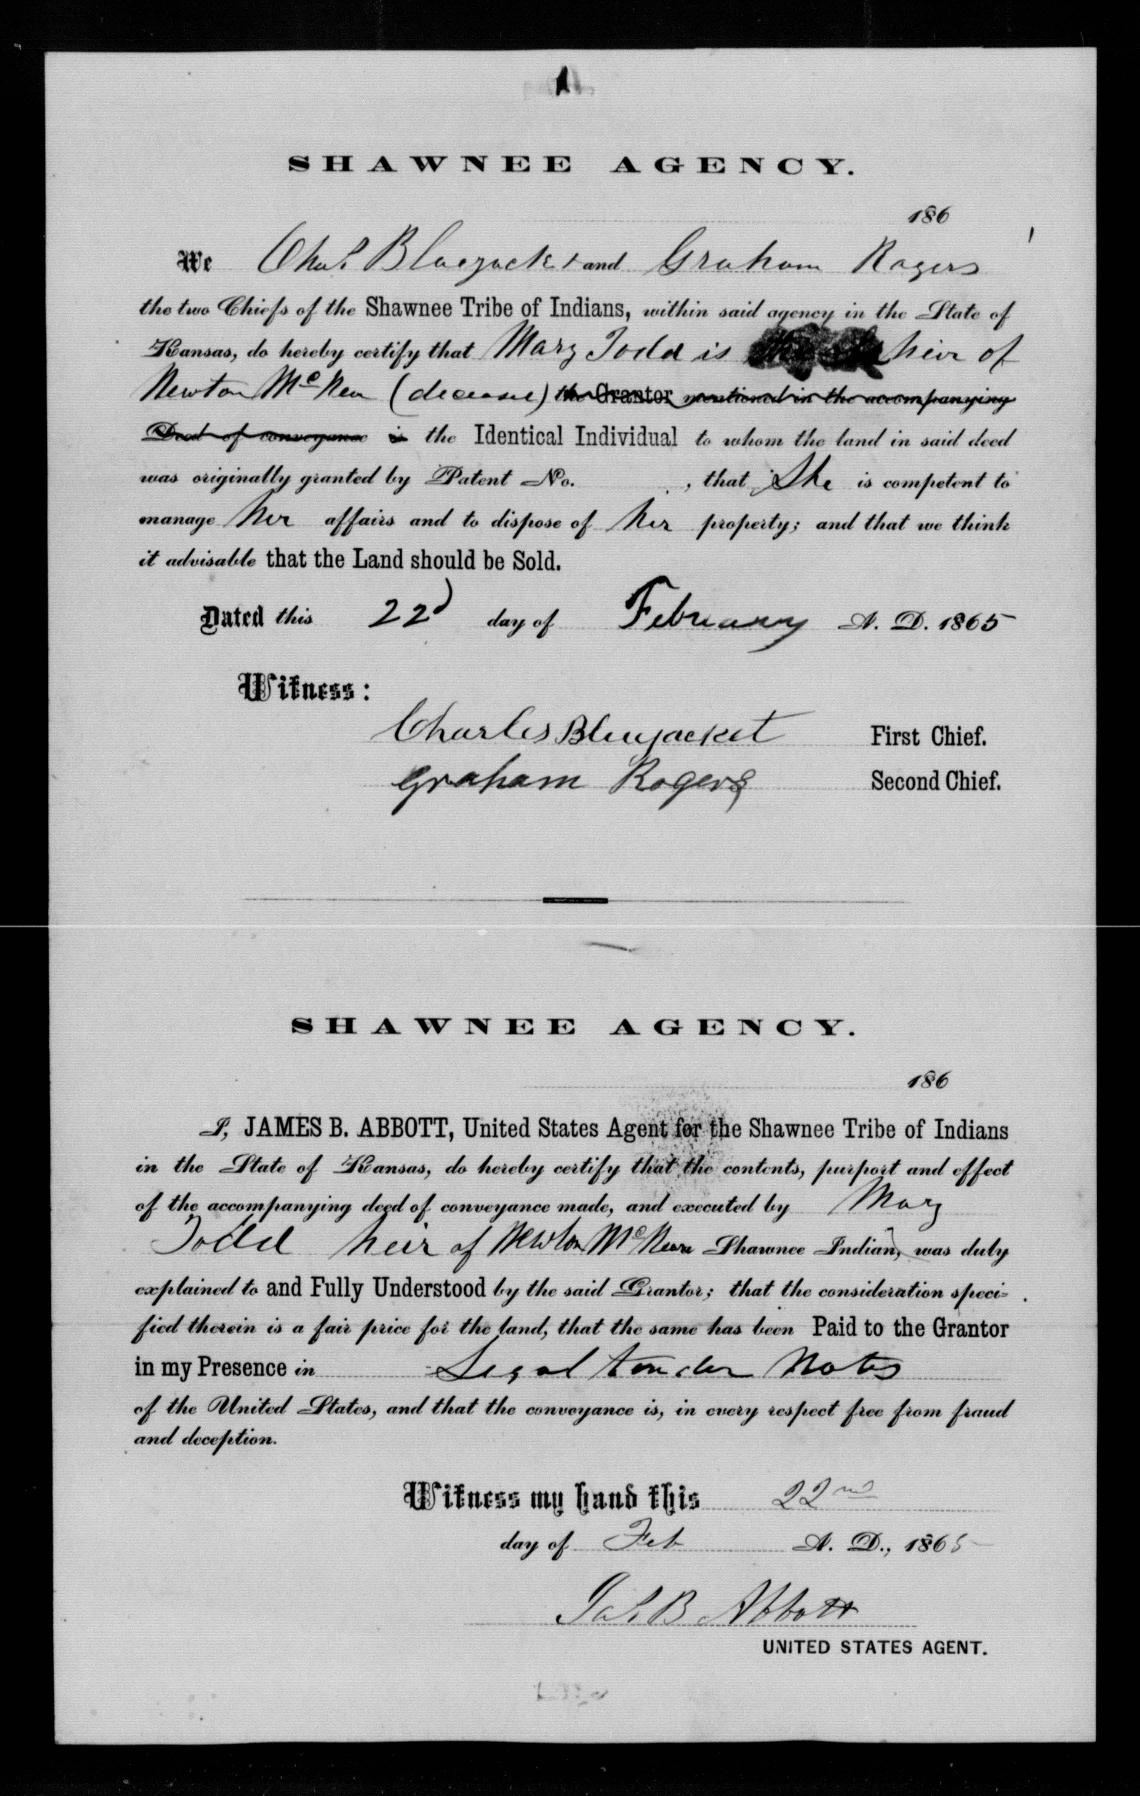 SHAWNEE AGENCY.
186
We Chas. Bluejacket and Graham Rogers
the two Chiefs of the Shawnee Tribe of Indians, within said agency in the State of
Kansas, do hereby certify that Mary Todd is heir of
Newton McNeu (decease) the Grantor mentioned in the accompanying
Deed of conveyance is the Identical Individual to whom the land in said deed
was originally granted by Patent No. , that She is competent to
manage her affairs and to dispose of her property; and that we think
it advisable that the Land should be Sold.
Dated this 22d day of February A. D. 1865
Witness:
Charles Bluejacket First Chief.
Graham Rogers Second Chief.
SHAWNEE AGENCY.
186
I, JAMES B. ABBOTT, United States Agent for the Shawnee Tribe of Indians
in the State of Kansas, do hereby certify that the contents, purport and effect
of the accompanying deed of conveyance made, and executed by Mary
Todd heir of Newton Shawnee Indian, was duly
explained to and Fully Understood by the said Grantor; that the consideration speci-
fied therein is a fair price for the land, that the same has been Paid to the Grantor
in my Presence in Legal tender Notes
of the United States, and that the conveyance is, in every respect free from fraud
and deception.
Witness my hand this 22nd
day of Feb A. D., 1865
Jas. B Abbott
UNITED STATES AGENT.